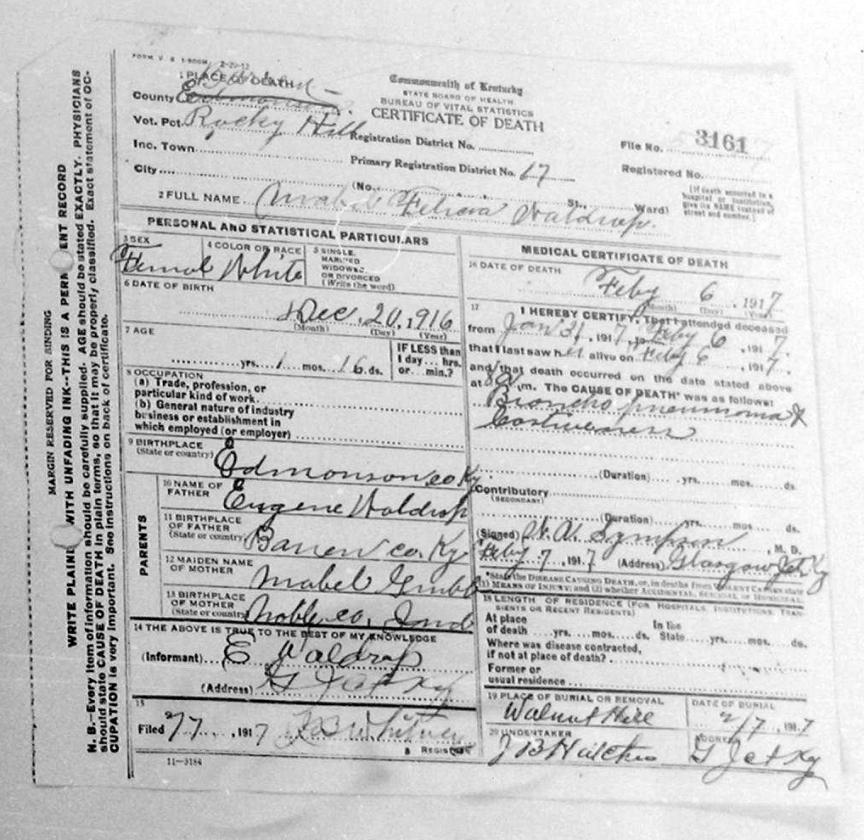 MARGIN RESERVED FOR BINDING
WRITE PLAINLY, WITH UNFADING INK--THIS IS A PERM ENT RECORD
N. B.--Every item of information should be carefully supplied. AGE should be stated EXACTLY. PHYSICIANS
should state CAUSE OF DEATH in plain terms, so that it may be properly classified. Exact statement of OC-
CUPATION is very important. See instructions on back of certificate.
1 PLACE OF DEATH
County Edmonson
Vot. Pct. Rocky Hill
Inc. Town
City (No. St., Ward)
Commonwealth of Kentucky
STATE BOARD OF HEALTH
BUREAU OF VITAL STATISTICS
CERTIFICATE OF DEATH
Registration District No.
Primary Registration District No. 17
File No. 3161
Registered No.
[If death occurred in a
hospital or institution,
give its NAME instead of
street and number.]
2 FULL NAME Felicia Waldrop
PERSONAL AND STATISTICAL PARTICULARS
3 SEX
Femal
4 COLOR OR RACE
White
5 SINGLE,
MARRIED
WIDOWED,
OR DIVORCED
(Write the word)
6 DATE OF BIRTH
Dec. 20, 1916
(Month) (Day) (Year)
7 AGE
yrs. 1 mos. 16 ds.
IF LESS than
1 day... hrs.
or... min.?
8 OCCUPATION
(a) Trade, profession, or
particular kind of work
(b) General nature of industry
business or establishment in
which employed (or employer)
9 BIRTHPLACE
(State or country)
Edmonson co Ky
PARENTS
10 NAME OF
FATHER
Eugene Waldrop
11 BIRTHPLACE
OF FATHER
(State or country)
Barren co. Ky
12 MAIDEN NAME
OF MOTHER
Mabel Grubb
13 BIRTHPLACE
OF MOTHER
(State or country)
Noble co. Ind
14 THE ABOVE IS TRUE TO THE BEST OF MY KNOWLEDGE
(Informant) E Waldrop
(Address) G Jct Ky
15
Filed 2/7, 1917 Whitney
REGISTRAR
11-3184
MEDICAL CERTIFICATE OF DEATH
16 DATE OF DEATH
Feby 6, 1917
(Month) (Day) (Year)
17 I HEREBY CERTIFY, That I attended deceased
from Jan 31, 1917, to Feby 6, 1917,
that I last saw her alive on Feby 6, 1917,
and that death occurred on the date stated above
at m. The CAUSE OF DEATH* was as follows:
Broncho pneumonia &
Costiveness
(Duration) yrs. mos. ds.
Contributory
(SECONDARY)
(Duration) yrs. mos. ds.
(Signed) Sympson, M. D.
Feby 7, 1917 (Address) Glasgow Jct Ky
*State the DISEASE CAUSING DEATH, or, in deaths from VIOLENT CAUSES state
(1) MEANS OF INJURY; and (2) whether ACCIDENTAL, SUICIDAL, or HOMICIDAL.
18 LENGTH OF RESIDENCE (FOR HOSPITALS, INSTITUTIONS, TRAN-
SIENTS OR RECENT RESIDENTS)
At place
of death yrs. mos. ds.
In the
State yrs. mos. ds.
Where was disease contracted,
if not at place of death?
Former or
usual residence
19 PLACE OF BURIAL OR REMOVAL
Walnut Hill
DATE OF BURIAL
2/7, 1917
20 UNDERTAKER
J B Hatcher
ADDRESS
G Jct Ky